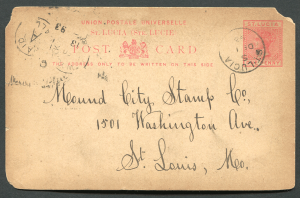 UNION POSTALE UNIVERSELLE
ST. LUCIA (STE LUCIE)
POST CARD
THE ADDRESS ONLY TO BE WRITTEN ON THIS SIDE
ST. LUCIA
ST LUCIA
Mound City Stamp Co.,
1501 Washington Ave.,
St. Louis, Mo.